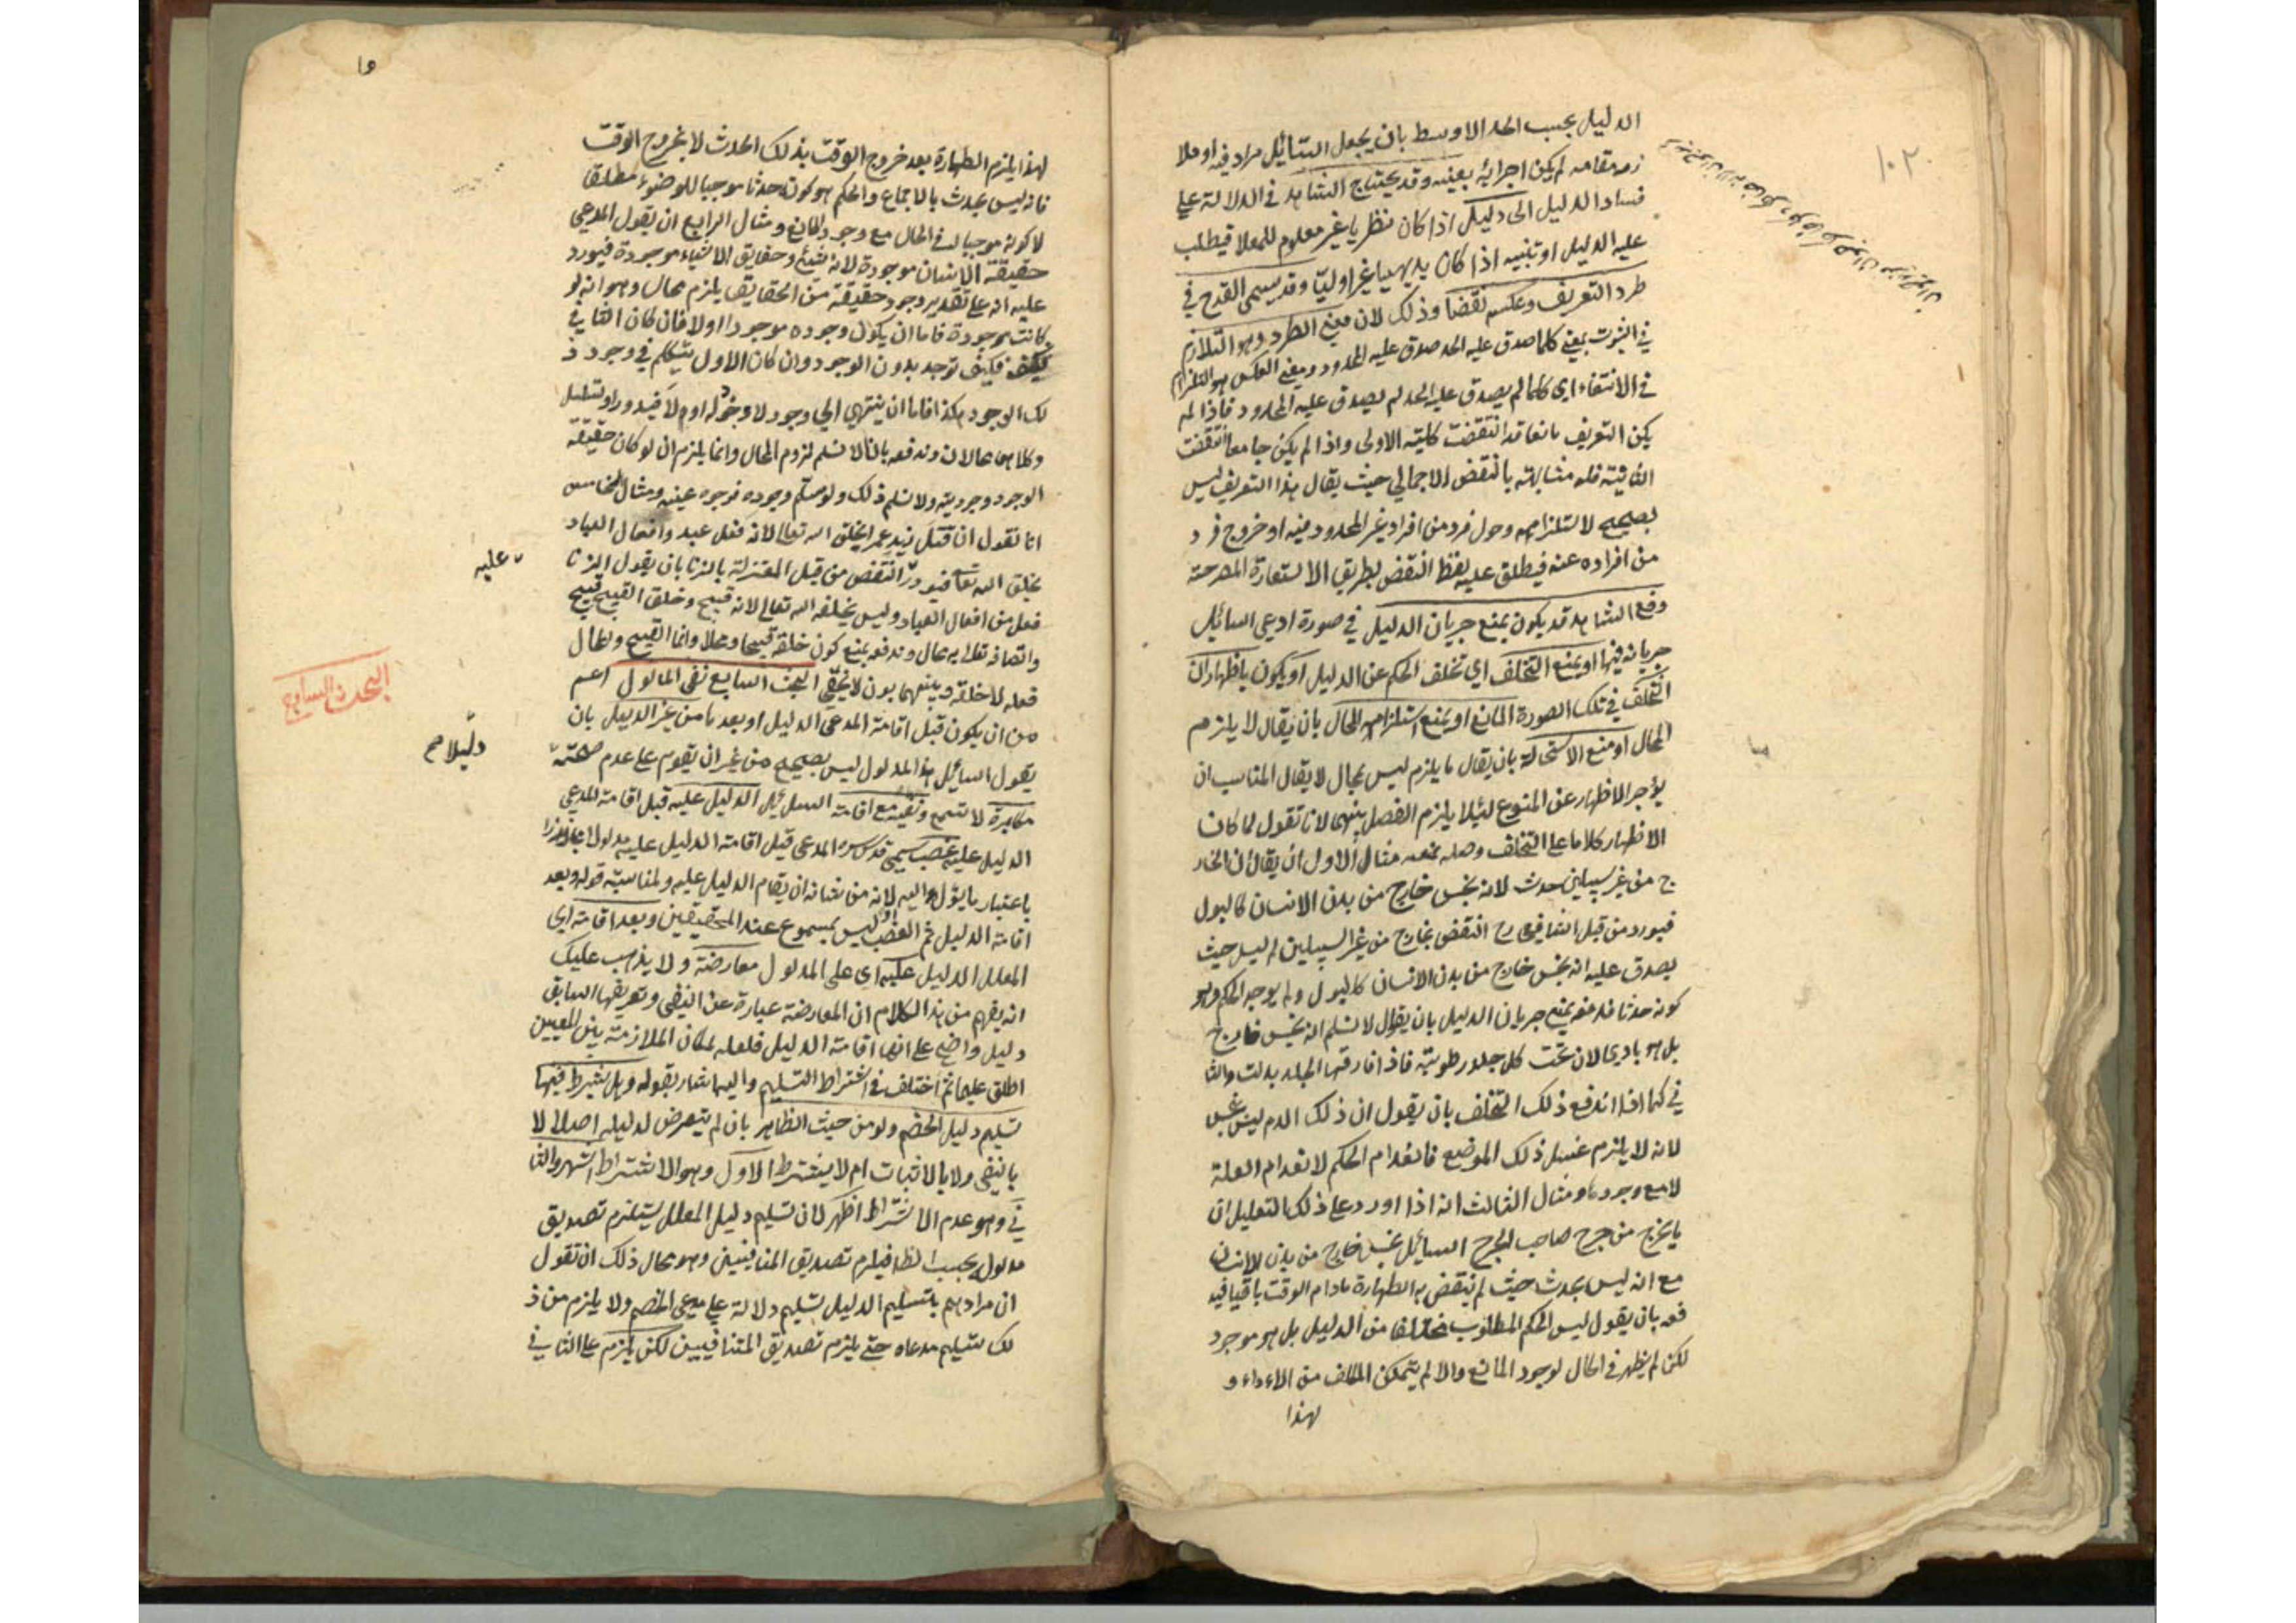 ١٠٢
الدليل بحسب الحد الاوسط بان يجعل السائل مرادفه او ملا
زمه مقامه لم يكن اجرائه بعينه وقد يحتاج الشاهد في الدلالة على
فساد الدليل الى دليل اذا كان نظريا غير معلوم للمعلل فيطلب
عليه الدليل او تنبيه اذا كان بديهيا غير اوليّ وقد يسمى القدح في
طرد التعريف وعكسه نقضا وذلك لان معنى الطرد وهو التلازم
في الثبوت بمعنى كلما صدق عليه الحد صدق عليه المحدود ومعنى العكس هو التلازم
في الانتفاء اي كلما لم يصدق عليه الحد لم يصدق عليه المحدود فاذا لم
يكن التعريف مانعا قد انتقضت كليته الاولى واذا لم يكن جامعا انتقضت
الثانية فله مشابهته بالنقض الاجمالي حيث يقال هذا التعريف ليس
بصحيح لاستلزامه دخول فرد من افراد غير المحدود فيه او خروج فرد
من افراده عنه فيطلق عليه لفظ النقض بطريق الاستعارة المصرحة
دفع الشاهد قد يكون بمنع جريان الدليل في صورة ادعى السائل
جريانه فيها او بمنع التخلف اي تخلف الحكم عن الدليل او يكون باظهار ان
التخلف في تلك الصورة المانع او بمنع استلزامه المحال بان يقال لا يلزم
المحال او منع الاستحالة بان يقال ما يلزم ليس بمحال لا يقال المناسب ان
يؤخر الاظهار عن المنوع لئلا يلزم الفصل بينهما لانا نقول لما كان
الاظهار كلاما على التخلف وصله بمنعه مثال الاول ان يقال ان الخار
ج من غير سبيلين حدث لانه نجس خارج من بدن الانسان كالبول
فيورد من قبل الشافعي رح النقض بخارج من غير السبيلين لم يسل حيث
يصدق عليه انه نجس خارج من بدن الانسان كالبول ولم يوجد الحكم وهو
كونه حدثا فندفعه بمنع جريان الدليل بان يقال لا نسلم انه نجس خارج
بل هو بادي لان تحت كل جلد رطوبة فاذا فارقها الجلد بدت والثا
في كما اذا اندفع ذلك التخلف بان يقول ان ذلك الدم ليس بنجس
لانه لا يلزم غسل ذلك الموضع فانعدام الحكم لانعدام العلة
لا مع وجودها ومثال الثالث انه اذا اورد على ذلك التعليل ان
ما يخرج من جرح صاحب الجرح السائل نجس خارج من بدن الانسان
مع انه ليس بحدث حيث لم ينتقض به الطهارة مادام الوقت باقيا فيد
فعه بان يقول ليس الحكم المطلوب متخلفا من الدليل بل هو موجود
لكن لم يظهر في الحال لوجود المانع والا لم يتمكن المكلف من الاداء و
لهذا
لهذا يلزم الطهارة بعد خروج الوقت بذلك الحدث لا بخروج الوقت
فانه ليس بحدث بالاجماع والحكم هو كونه حدثا موجبا للوضوء مطلقا
لا كونه موجبا له في الحال مع وجود المانع ومثال الرابع ان يقول المدعي
حقيقة الانسان موجودة لانه شيئ وحقايق الاشياء موجودة فيورد
عليه انه على تقدير وجود حقيقة من الحقايق يلزم محال وهو انه لو
كانت موجودة فاما ان يكون وجوده موجودا او لا فان كان الثاني
فكيف توجد بدون الوجود وان كان الاول نتكلم في وجود ذ
لك الوجود هكذا فاما ان ينتهي الى وجود لا وجود له او لا فيدور او يتسلسل
وكلاهما محالان وندفعه بانا لا نسلم لزوم المحال وانما يلزم ان لو كان حقيقة
الوجود وجودية ولا نسلم ذلك ولو سلم وجوده فوجوده عينه ومثال الخامس
انا نقول ان قتل زيد عمرا بخلق الله تعالى لانه فعل عبد وافعال العباد
بخلق الله تعالى فيورد النقض من قبل المعتزلة بالزنا بان يقول الزنا
عليه
فعل من افعال العباد وليس بخلقه الله تعالى لانه قبيح وخلق القبيح قبيح
واتصافه تعالى به محال وندفعه بمنع كون خلقه قبيحا ومحالا وانما القبيح والمحال
فعله لا خلقه وبينهما بون لا يخفى البحث السابع نفي المدلول اعم
البحث السابع
من ان يكون قبل اقامة المدعي الدليل او بعدها من غير الدليل بان
دليلا صح
يقول السائل هذا المدلول ليس بصحيح من غير ان يقوم على عدم صحته
مكابرة لا تسمع ونفيه مع اقامة السائل الدليل عليه قبل اقامة المدعي
الدليل عليه غصب سمى قدس سره المدعى قبل اقامة الدليل عليه مدلولا مجازا
باعتبار ما يؤل اليه لانه من شانه ان يقام الدليل عليه ولمناسبة قوله وبعد
اقامة الدليل ثم الغصب ليس بمسموع عند المحققين وبعد اقامته اي
المعلل الدليل عليه اي على المدلول معارضة ولا يذهب عليك
انه يفهم من هذا الكلام ان المعارضة عبارة عن النفي وتعريفها السابق
دليل واضح على انها اقامة الدليل فلعله لمكان الملازمة بين المعنيين
اطلق عليها ثم اختلف في اشتراط التسليم واليها اشار بقوله وهل يشترط فيها
تسليم دليل الخصم ولو من حيث الظاهر بان لم يتعرض لدليله اصلا لا
بالنفي ولا بالاثبات ام لا يشترط الاول وهو الاشتراط اشهر والثا
ني وهو عدم الاشتراط اظهر لان تسليم دليل المعلل يستلزم تصديق
مدلوله بحسب الظ فيلزم تصديق المتنافيين وهو محال ذلك ان تقول
ان مرادهم بتسليم الدليل تسليم دلالته على مدعى الخصم ولا يلزم من ذ
لك تسليم مدعاه حتى يلزم تصديق المتنافيين لكن يلزم على الثاني